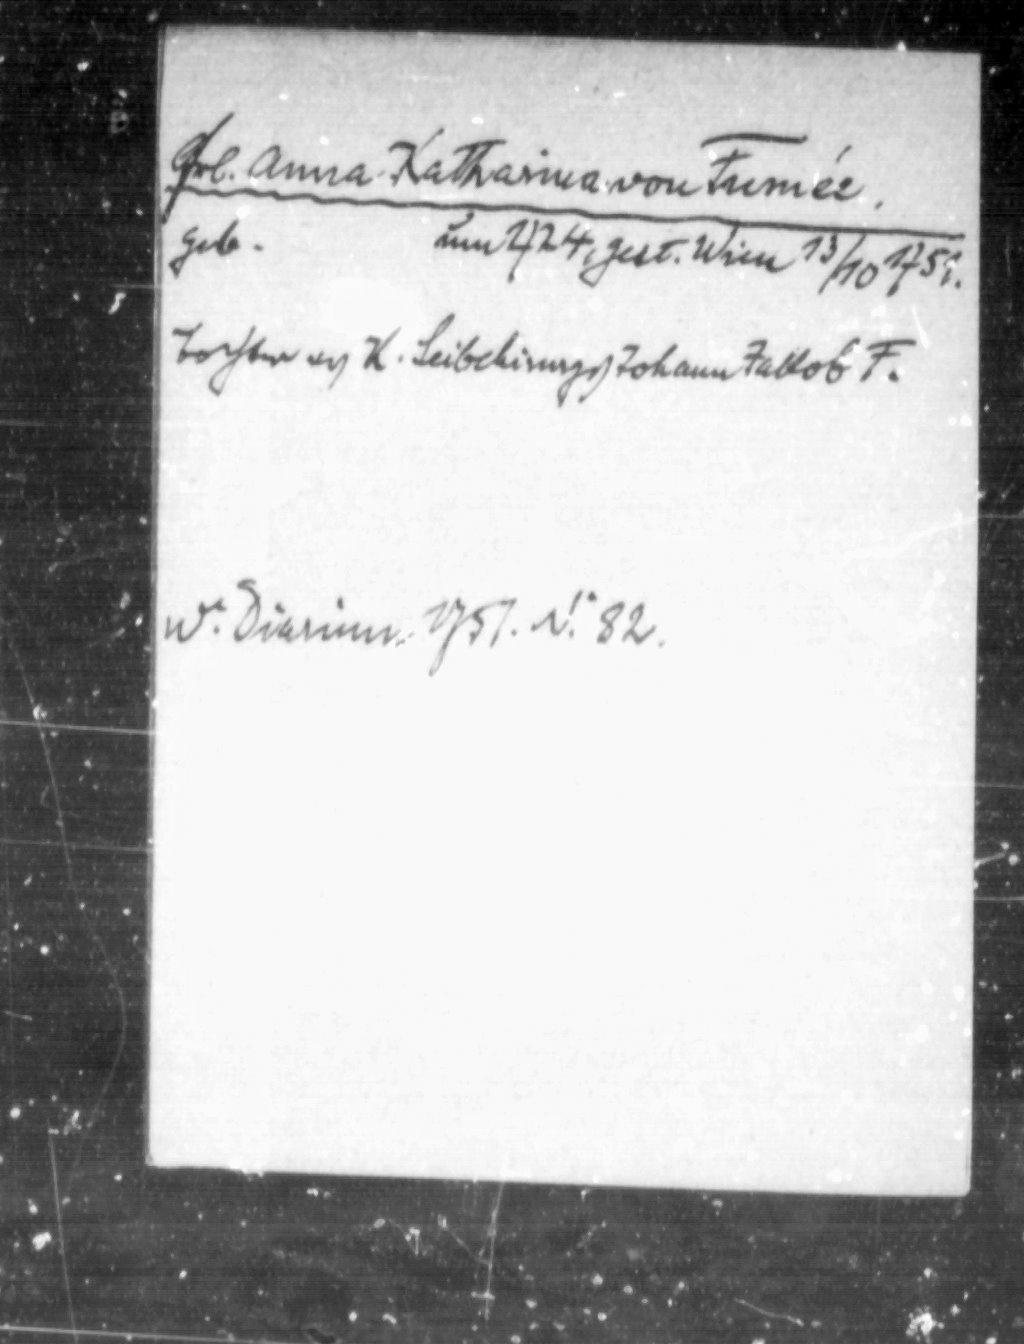 Frl. Anna Katharina von Fumée.
geb. um 1724, gest. Wien 13/10 1751.
Tochter des K. Leibchirurgs Johann Jakob F.
W. Diarium 1751. N. 82.